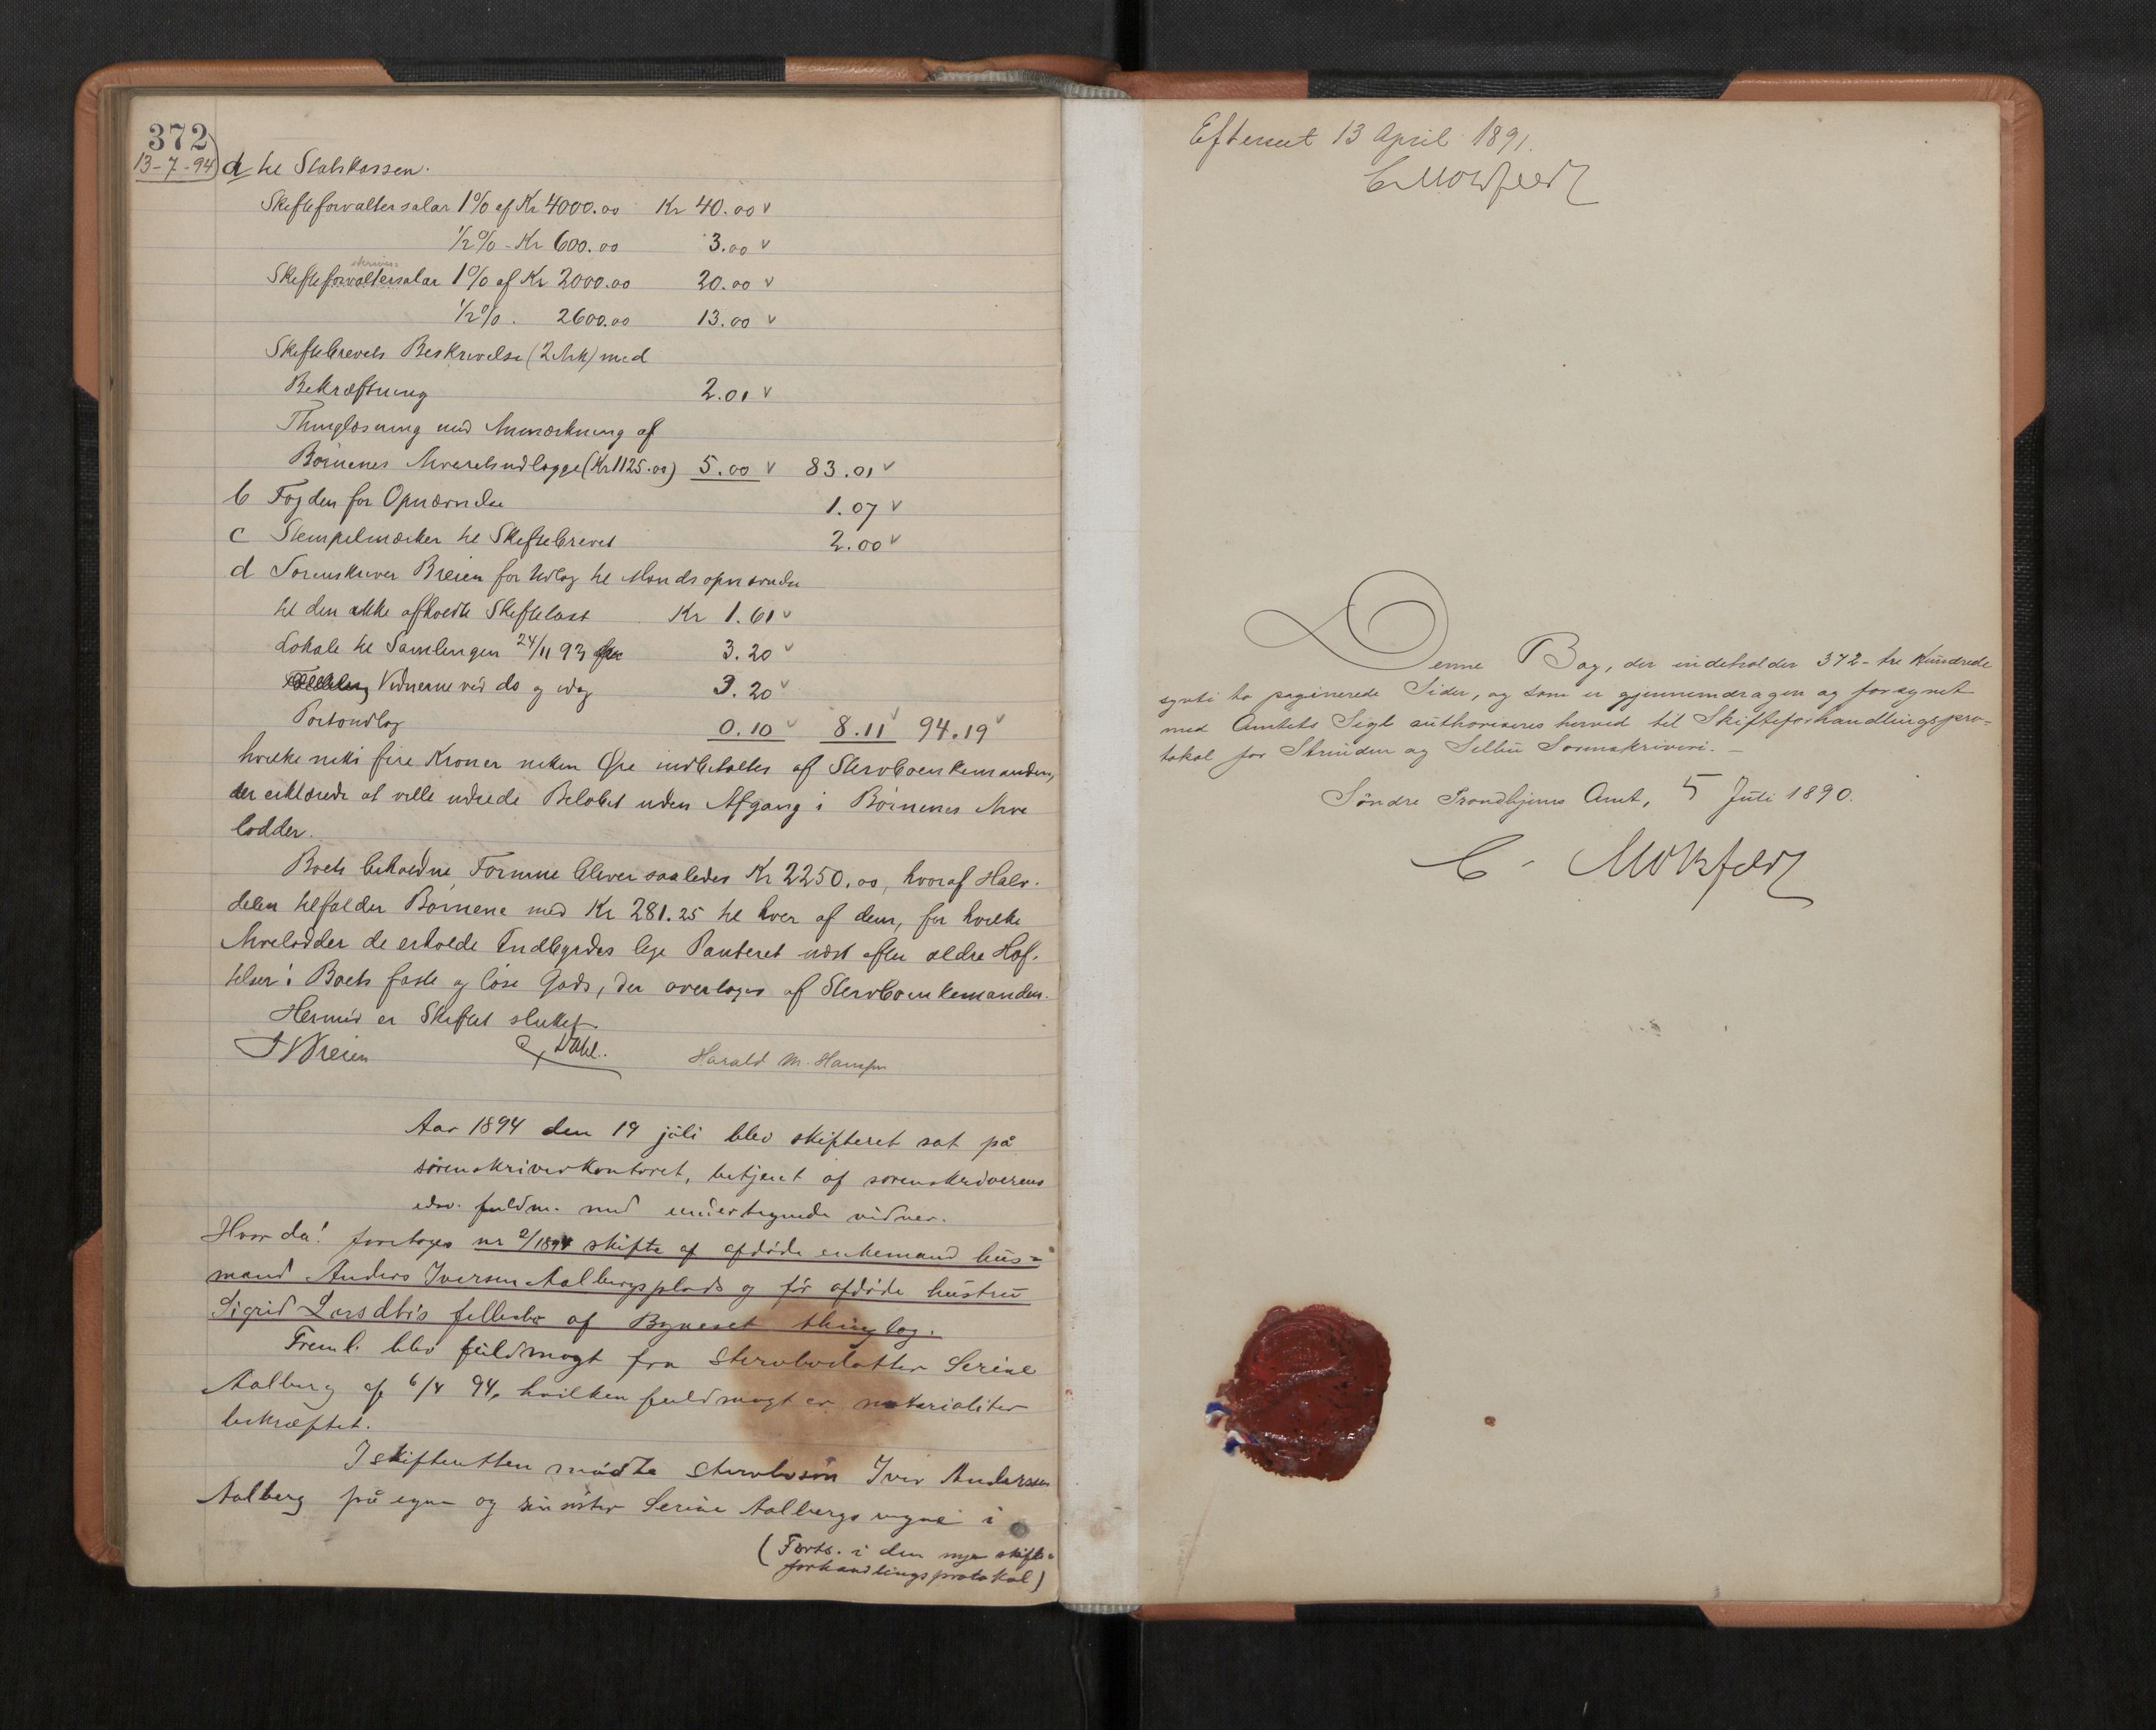 372
13-7-94
a til Statskassen.
Skifteforvaltersalar 1% af Kr 4000.00 Kr 40.00 v
1/2% - Kr 600.00 3.00 v
skriver
Skifteforvaltersalar 1% af Kr 2000.00 20.00 v
1/2% . 2600.00 13.00 v
Skiftebrevets Beskrivelse (2 Ark) med
Bekræftning 2.01 v
Thinglæsning med Anmærkning af
Børnenes Arveudlægge (Kr 1125.00) 5.00 v 83.01 v
b Fogden for Opnævnelse 1.07 v
c Stempelmærker til Skiftebrevet 2.00 v
d Sorenskriver Breien for Udlæg til Mandsopnævnelse
til den ikke afholdte Skiftetaxt Kr 1.61 v
Lokale til Samlingen 24/11 93 3.20 v
Vidnerne ved do og idag 3.20 v
Portoudlæg 0.10 v 8.11 v 94.19 v
hvilke nitti fire Kroner nitten Øre indbetaltes af Stervboenkemanden,
der erklærede at ville udrede Beløbet uden Afgang i Børnenes Arve
lodder.
Boets beholdne Formue bliver saaledes Kr 2250.00, hvoraf Halv-
delen tilfalder Børnene med Kr 281.25 til hver af dem, for hvilke
Arvelodder de erholde Indbyrdes lige Panteret næst efter ældre Hef-
telser i Boets faste og løse Gods, der overtages af Stervboenkemanden.
Hermed er Skiftet sluttet.
Breien Dahl. Harald M. Hansen
Aar 1894 den 19 juli blev skifteret sat på
sorenskriverkontoret, betjent af sorenskriverens
edsv. fuldm. med undertegnede vidner.
Hvor da! foretoges nr 2/1894 skifte af afdøde enkemand hus=
mand Anders Iversen Aalbergsplads og før afdøde hustru
Sigrid Larsdtr's fellesbo af Bynesset thinglag.
Freml. blev fuldmagt fra stervbodatter Serine
Aalberg af 6/4 94, hvilken fuldmagt er notarialiter
bekræftet.
I skifteretten mødte stervbosøn Iver Andersen
Aalberg på egne og sin søster Serine Aalbergs vegne i
(Forts. i den nye skifte=
forhandlingsprotokol)
Efterseet 13 April 1891.
C Motzfeldt
Denne Bog, der indeholder 372 - tre Hundrede
sytti to paginerede Sider, og som er gjennemdragen og forsynet
med Amtets Segl authoriseres herved til Skifteforhandlingspro=
tokol for Strinden og Selbu Sorenskriveri. -
Søndre Trondhjems Amt, 5 Juli 1890.
C. Motzfeldt